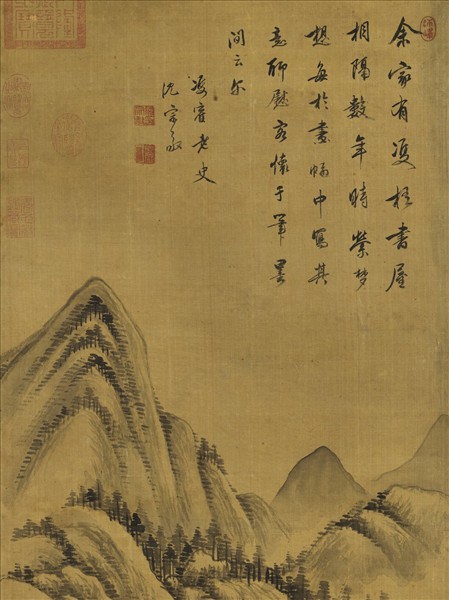 余家有書屋
相隔數年時縈夢
想每於畫幅中寫其
意聊慰客懷于筆墨
間云尔
老史
沈宗敬